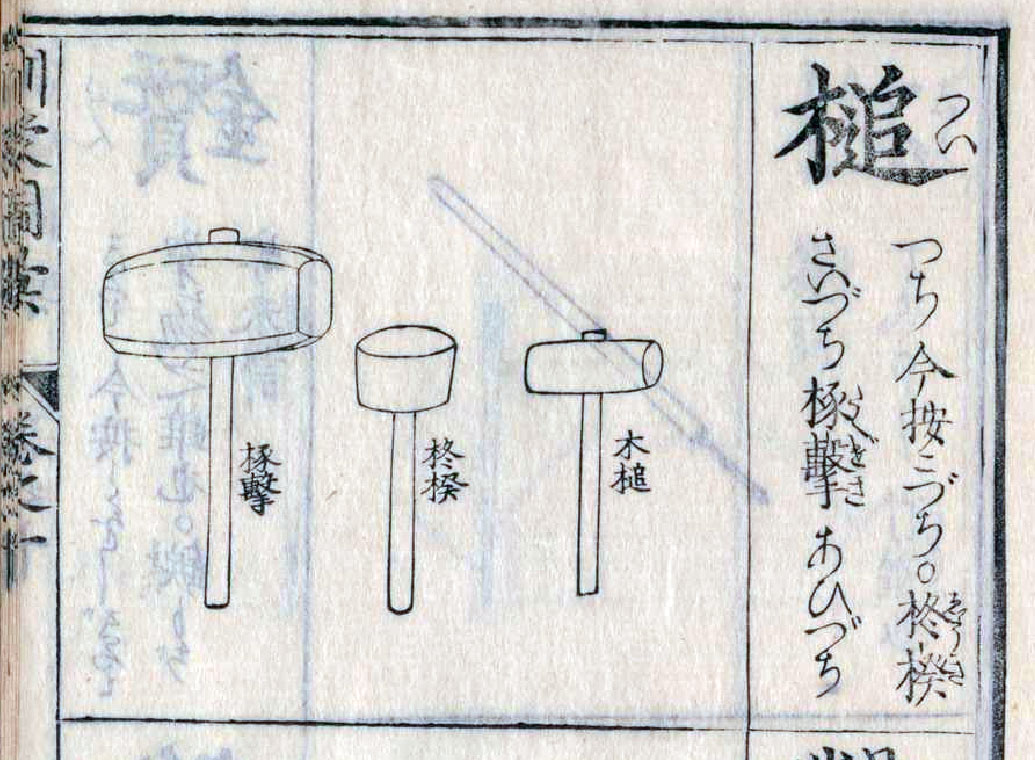 槌
つい
つち 今按こづち。柊楑
しうき
さいづち 椓擊 あひづち
木槌
柊楑
椓擊
訓蒙圖彙